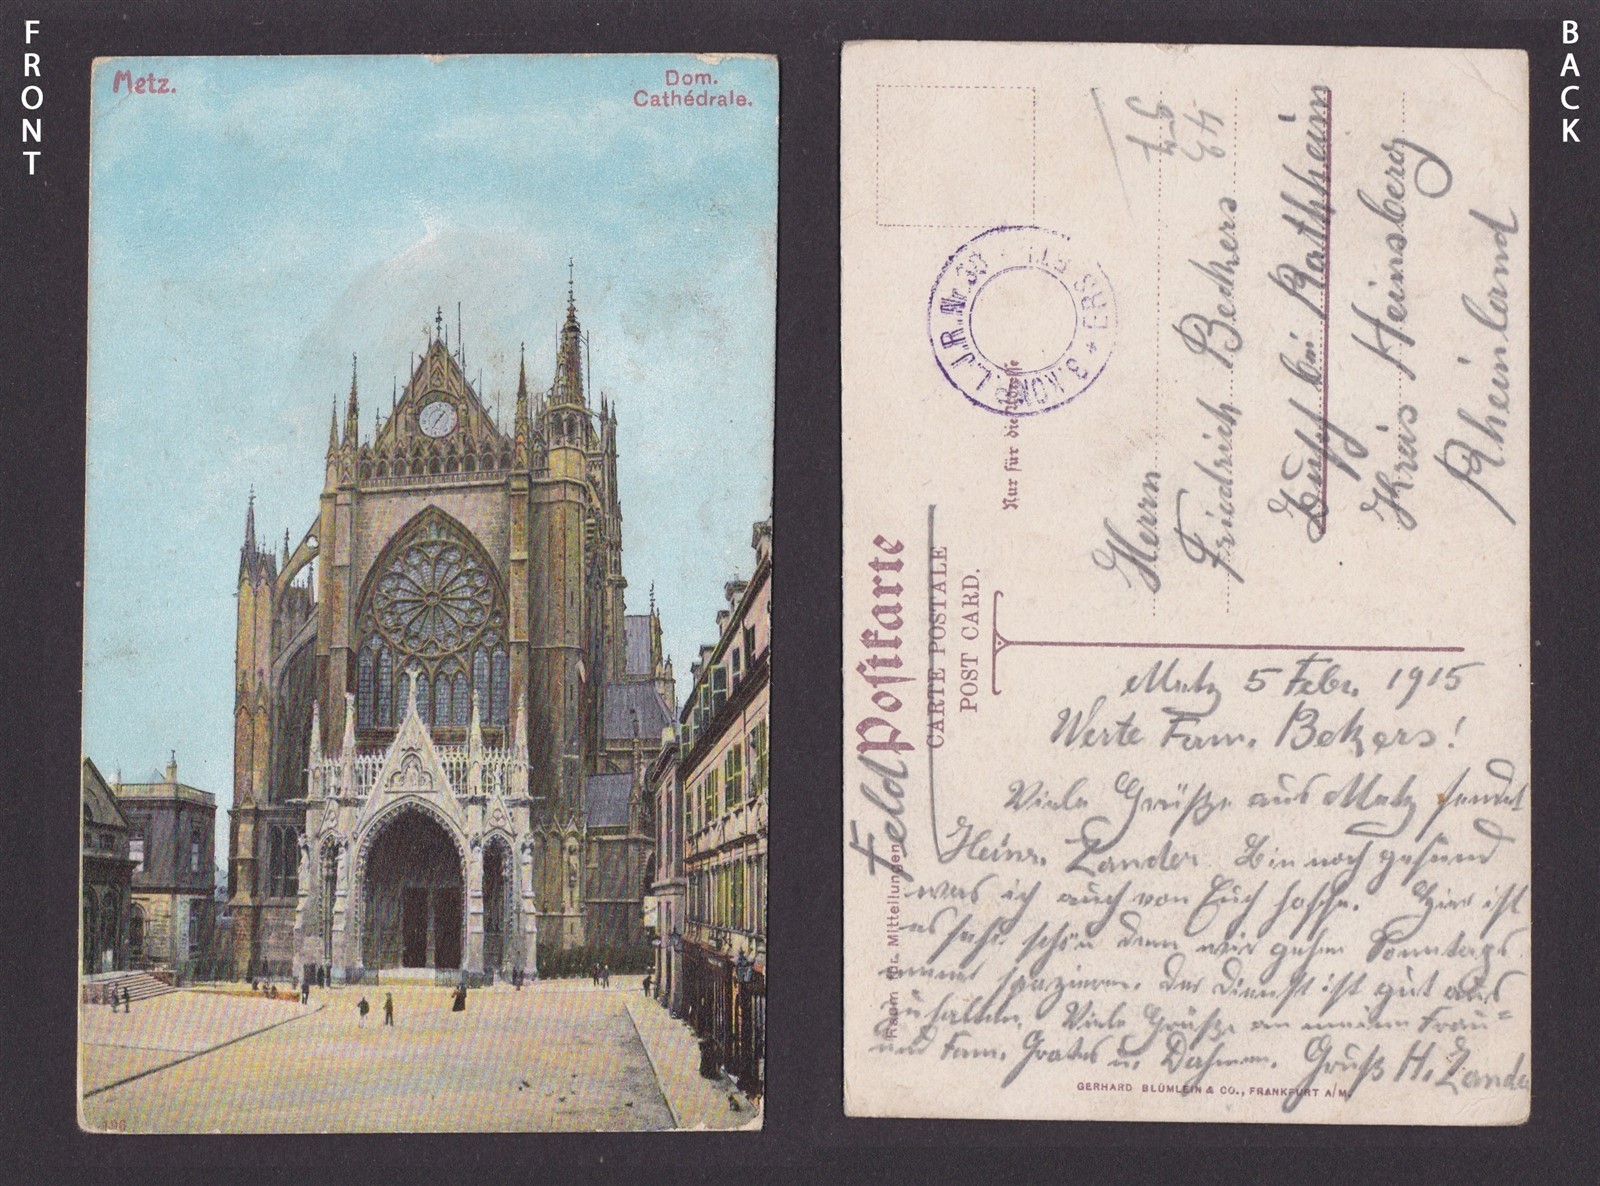 FRONT
BACK
Metz.
Dom.
Cathédrale.
Feld Postkarte
CARTE POSTALE
POST CARD.
Nur für die Adresse
Raum für Mitteilungen
3. KOMP. L.J.R. Nr. 30 ERS
Herrn
Friedrich Beckers
bei Rathheim
Kreis Heinsberg
Rheinland
Metz 5 Febr. 1915
Werte Fam. Bekers!
Viele Grüße aus Metz sendet
Heinr. Zander. Bin noch gesund
was ich auch von Euch hoffe. Hier ist
es sehr schön denn wir gehen Sonntags
immer spazieren. Der Dienst ist gut aus
zuhalten. Viele Grüße an meine Frau
und Fam. u. Dahmen. Gruß H. Zander
GERHARD BLÜMLEIN & CO., FRANKFURT A/M.